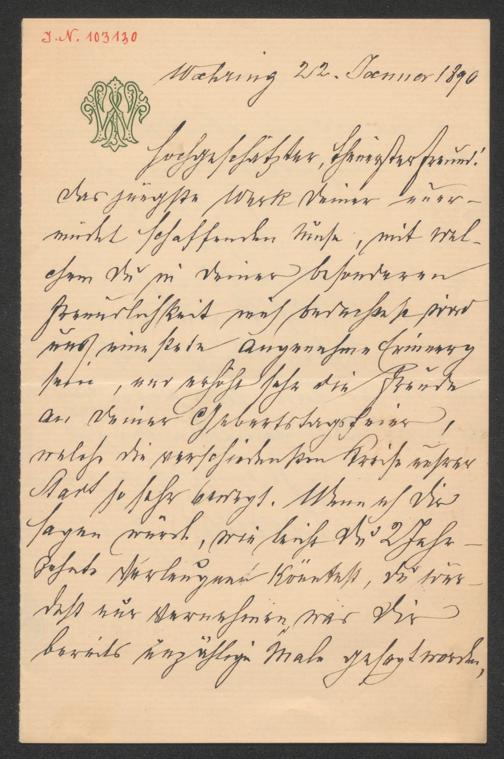 J. N. 103130
W
Währing 22. Jänner 1890
Hochgeschätzter, theuerster Freund!
Das jüngste Werk Deiner uner-
müdet schaffenden Muse, mit wel-
chem Du in Deiner besonderen
Freundlichkeit mich bedachtest wird
uns eine stete angenehme Erinnerg
sein, und erhöht sehr die Freude
an Deiner Geburtstagsfeier,
welche die verschiedensten Kreise unsrer
Stadt so sehr bewegt. Wenn ich Dir
sagen würde, wie leicht Du 2 Jahr-
zehnte verleugnen könntest, Du wür-
dest nur vernehmen, was Dir
bereits unzählige Male gesagt worden,